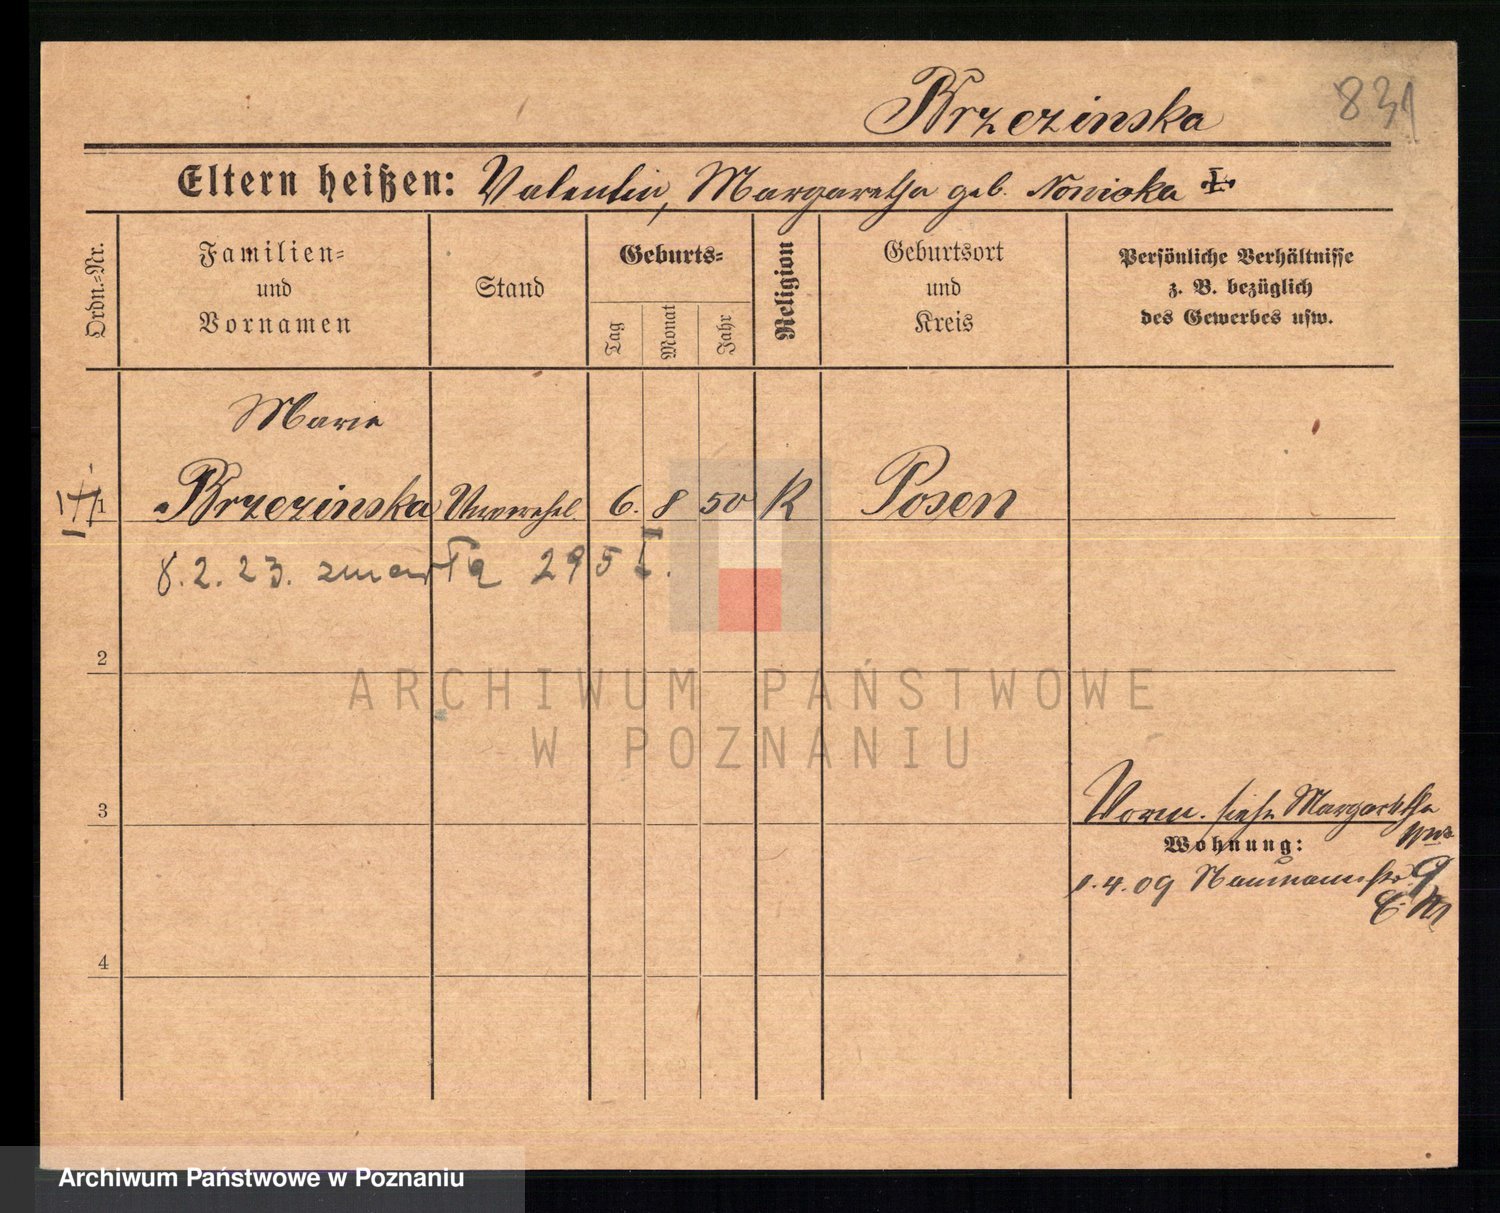 Brzezinska
831
Eltern heißen: Valentin, Margaretha geb. Nowicka
Ordn.=Nr.
Familien=
und
Vornamen
Stand
Geburts=
Tag
Monat
Jahr
Religion
Geburtsort
und
Kreis
Persönliche Verhältnisse
z. B. bezüglich
des Gewerbes usw.
Marie
1 Brzezinska Unverehel. 6. 8 50 K Posen
8.2.23. zmarła 295 I.
2
ARCHIWUM PAŃSTWOWE
W POZNANIU
3
Vorm. siehe Margaretha
Wohnung:
1.4.09 Naumannstr. 9
4
Archiwum Państwowe w Poznaniu